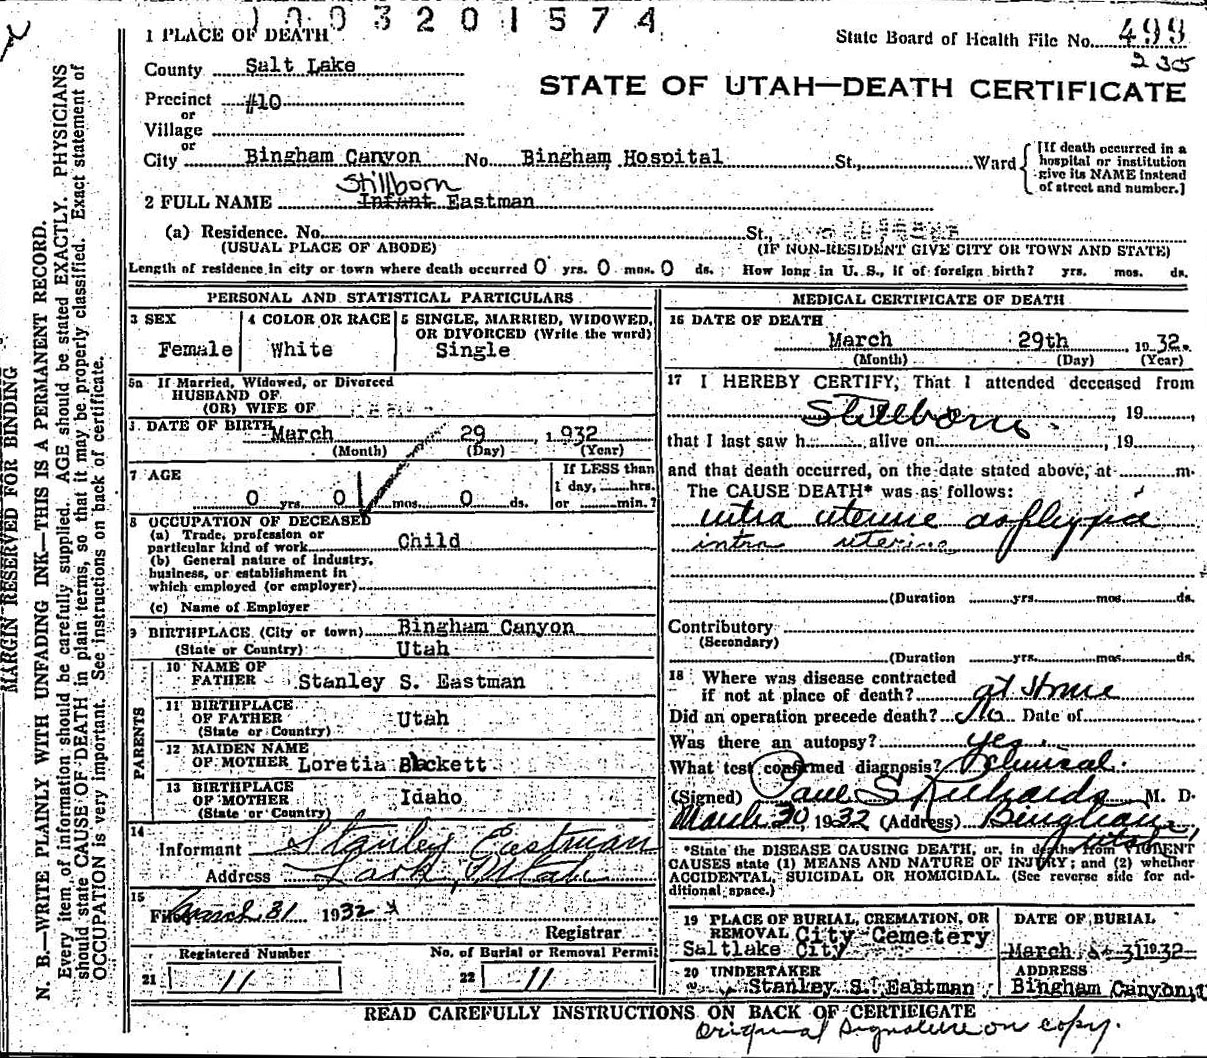 1003201574
1 PLACE OF DEATH
State Board of Health File No. 499
235
County Salt Lake
STATE OF UTAH—DEATH CERTIFICATE
Precinct #10
or
Village
or
City Bingham Canyon No. Bingham Hospital St., Ward
[If death occurred in a
hospital or institution
give its NAME instead
of street and number.]
Stillborn
2 FULL NAME Infant Eastman
(a) Residence. No. St.,
(USUAL PLACE OF ABODE) (IF NON-RESIDENT GIVE CITY OR TOWN AND STATE)
Length of residence in city or town where death occurred 0 yrs. 0 mos. 0 ds. How long in U. S., if of foreign birth? yrs. mos. ds.
PERSONAL AND STATISTICAL PARTICULARS
3 SEX 4 COLOR OR RACE 5 SINGLE, MARRIED, WIDOWED,
OR DIVORCED (Write the word)
Female White Single
5a If Married, Widowed, or Divorced
HUSBAND OF
(OR) WIFE OF
DATE OF BIRTH March 29 1932
(Month) (Day) (Year)
7 AGE
If LESS than
1 day, hrs.
0 yrs. 0 mos. 0 ds. or min.?
8 OCCUPATION OF DECEASED
(a) Trade, profession or
particular kind of work Child
(b) General nature of industry,
business, or establishment in
which employed (or employer)
(c) Name of Employer
9 BIRTHPLACE (City or town) Bingham Canyon
(State or Country) Utah
PARENTS
10 NAME OF
FATHER Stanley S. Eastman
11 BIRTHPLACE
OF FATHER Utah
(State or Country)
12 MAIDEN NAME
OF MOTHER Loretia Beckett
13 BIRTHPLACE
OF MOTHER Idaho
(State or Country)
14
Informant Stanley Eastman
Address Lark, Utah
15
Filed March 31 1932
Registrar
Registered Number No. of Burial or Removal Permit
21 11 22 11
MEDICAL CERTIFICATE OF DEATH
16 DATE OF DEATH
March 29th 1932.
(Month) (Day) (Year)
17 I HEREBY CERTIFY, That I attended deceased from
Stillborn. 19 , 19 ,
that I last saw h alive on , 19
and that death occurred, on the date stated above, at m.
The CAUSE DEATH* was as follows:
intra uterine asphyxia
intra uterine
(Duration yrs. mos. ds.
Contributory
(Secondary)
(Duration yrs. mos. ds.
18 Where was disease contracted
if not at place of death? at Home
Did an operation precede death? No Date of
Was there an autopsy? yes.
What test confirmed diagnosis? Clinical.
(Signed) Paul S Richards M. D.
March 30, 1932 (Address) Bingham, Utah
*State the DISEASE CAUSING DEATH, or, in deaths VIOLENT
CAUSES state (1) MEANS AND NATURE OF INJURY; and (2) whether
ACCIDENTAL, SUICIDAL OR HOMICIDAL. (See reverse side for ad-
ditional space.)
19 PLACE OF BURIAL, CREMATION, OR DATE OF BURIAL
REMOVAL City Cemetery
Saltlake City March 31 1932
20 UNDERTAKER ADDRESS
Stanley S. Eastman Bingham Canyon, U
READ CAREFULLY INSTRUCTIONS ON BACK OF CERTIFICATE
Original Signature on copy.
MARGIN RESERVED FOR BINDING
N. B.—WRITE PLAINLY WITH UNFADING INK—THIS IS A PERMANENT RECORD.
Every item of information should be carefully supplied. AGE should be stated EXACTLY. PHYSICIANS
should state CAUSE OF DEATH in plain terms, so that it may be properly classified. Exact statement of
OCCUPATION is very important. See instructions on back of certificate.